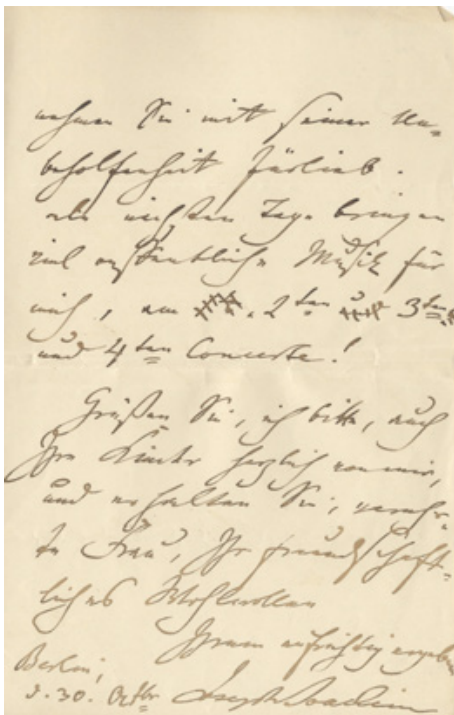 nehmen Sie mit seiner Un-
beholfenheit fürlieb.
nächsten Tage bringen
viel Musik für
mich, am 2ten 3ten
und 4ten Concerte!
Grüßen Sie, ich bitte, auch
Ihre Kinder herzlich von mir,
und erhalten Sie, verehr-
te Frau, Ihr freundschaft-
liches Wohlwollen
Ihrem aufrichtig ergebnen
Berlin,
d. 30. Octbr Joseph Joachim